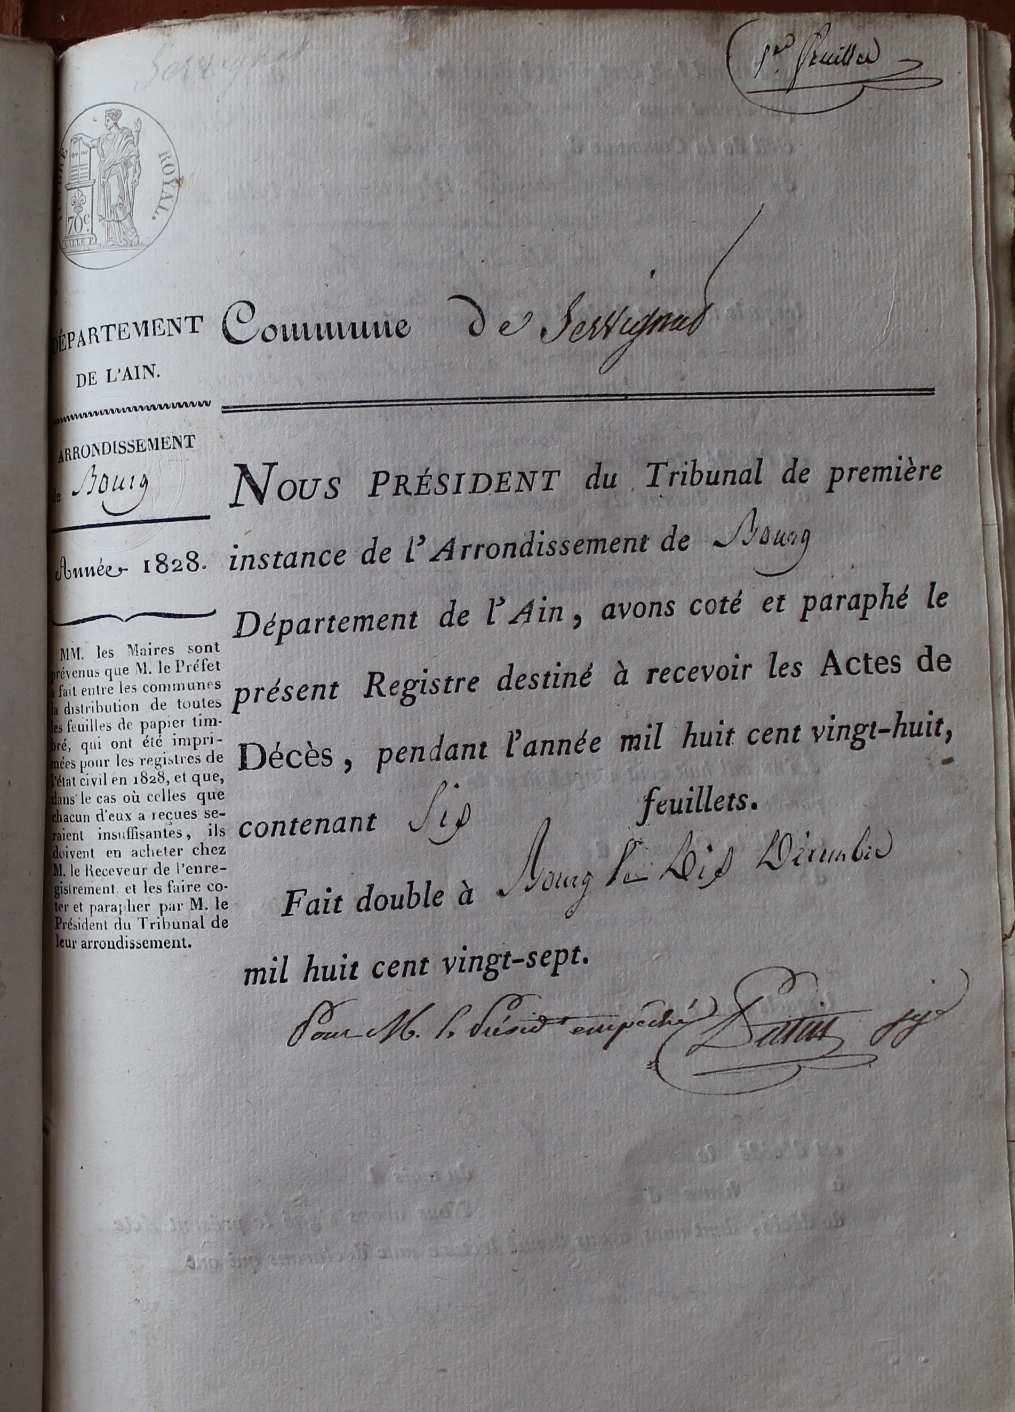 1er feuillet
ROYAL.
70c.
DÉPARTEMENT
DE L'AIN.
Commune de Servignat
ARRONDISSEMENT
de Bourg
Année 1828.
MM. les Maires sont
prévenus que M. le Préfet
a fait entre les communes
la distribution de toutes
les feuilles de papier tim-
bré, qui ont été impri-
mées pour les registres de
l'état civil en 1828, et que,
dans le cas où celles que
chacun d'eux a reçues se-
raient insuffisantes, ils
doivent en acheter chez
M. le Receveur de l'enre-
gistrement et les faire co-
ter et parapher par M. le
Président du Tribunal de
leur arrondissement.
NOUS PRÉSIDENT du Tribunal de première
instance de l'Arrondissement de Bourg
Département de l'Ain, avons coté et paraphé le
présent Registre destiné à recevoir les Actes de
Décès, pendant l'année mil huit cent vingt-huit,
contenant Six feuillets.
Fait double à Bourg le Dix Décembre
mil huit cent vingt-sept.
Pour M. le Présidt empêché